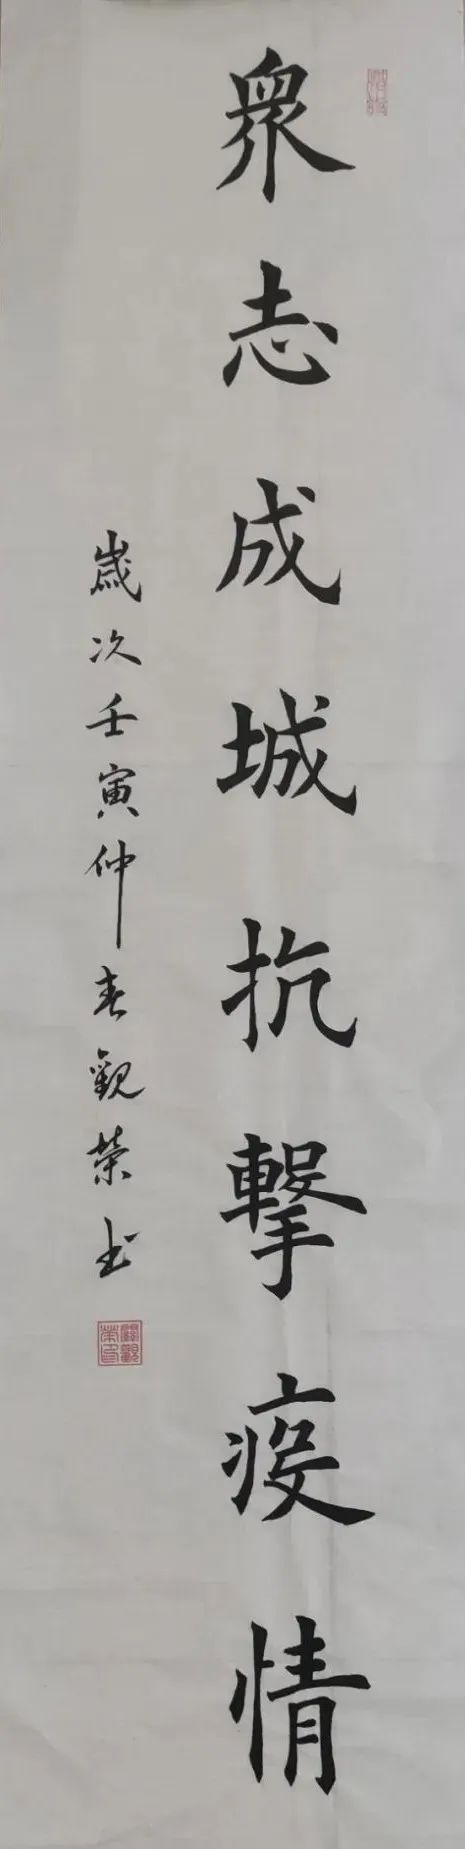 眾志成城抗擊疫情
歲次壬寅仲春觀榮書